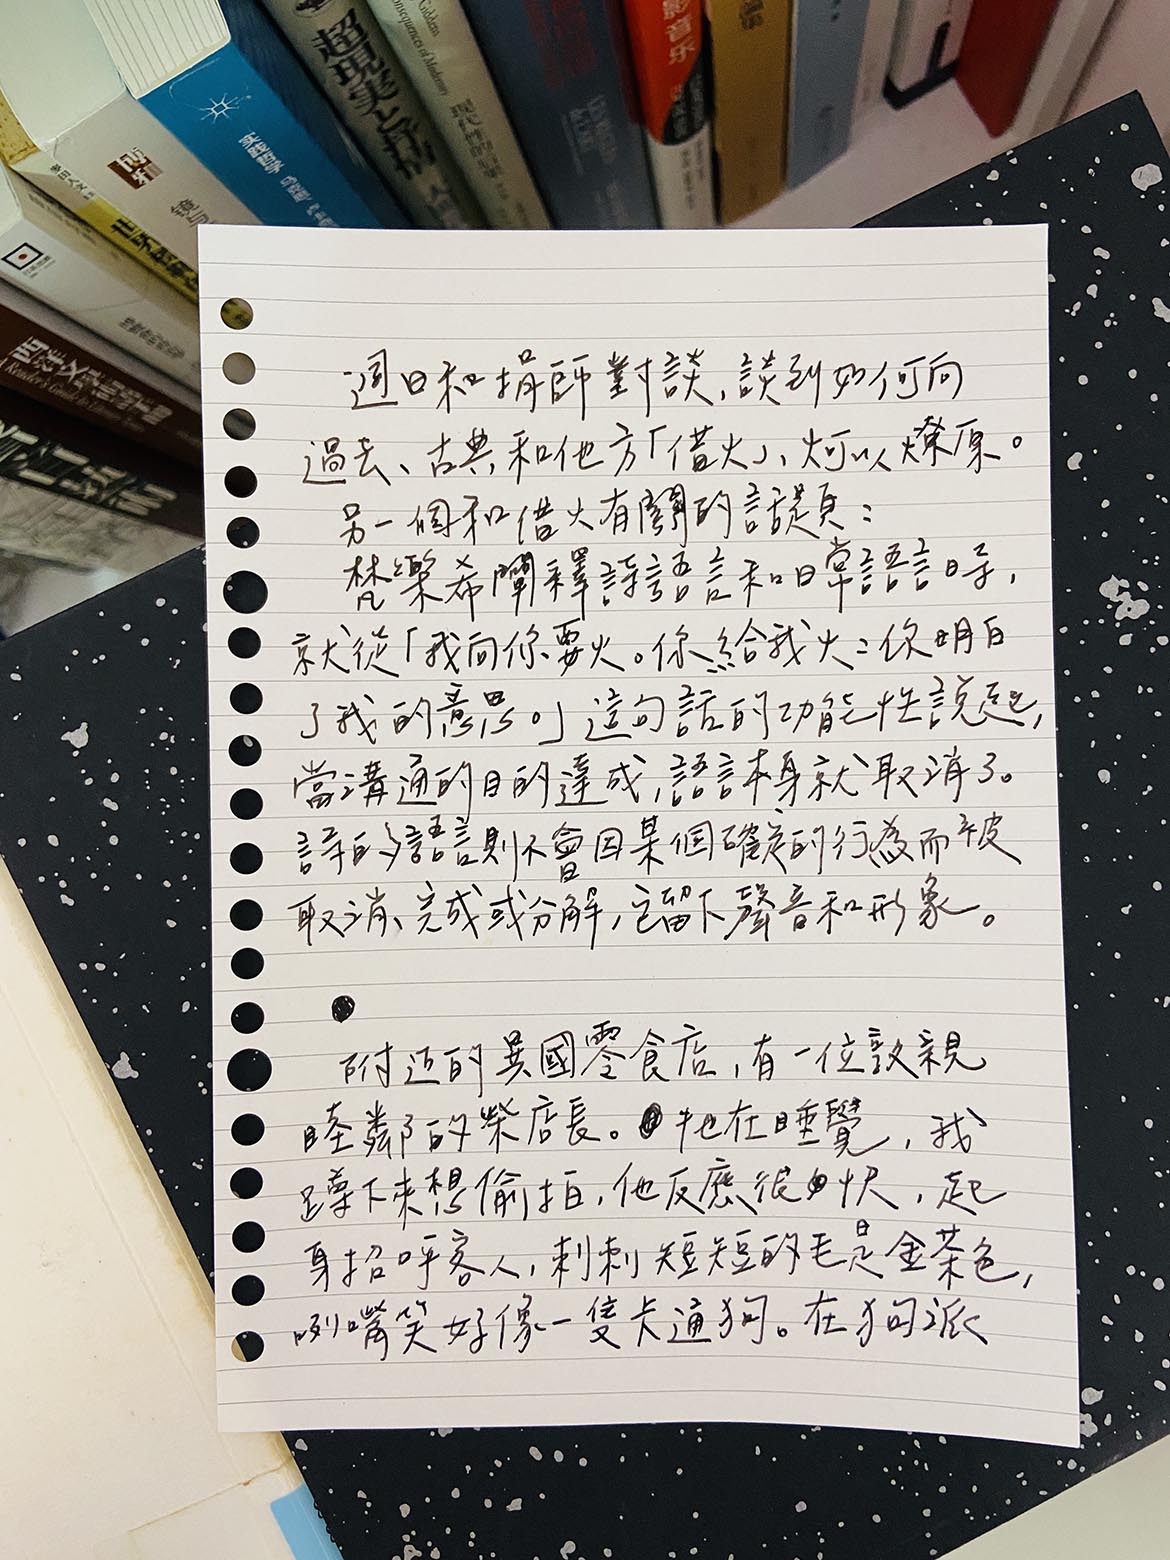 超現實之存活
Consequences of Modernity
现代性的后果
影音乐
实践哲学
镜与
週日和捐師對談,談到如何向
過去、古典和他方「借火」、火可以燎原。
另一個和借火有關的話題:
梵樂希闡釋詩語言和日常語言時,
就從「我向你要火。你給我火:你明白
了我的意思。」這句話的功能性說起,
當溝通的目的達成,語言本身就取消了。
詩的語言則不會因某個確定的行為而被
取消、完成或分解,它留下聲音和形象。
附近的異國零食店,有一位敦親
睦鄰的柴店長。牠在睡覺,我
蹲下來想偷拍,他反應很快,起
身招呼客人,刺刺短短的毛是金茶色,
咧嘴笑好像一隻卡通狗。在狗派